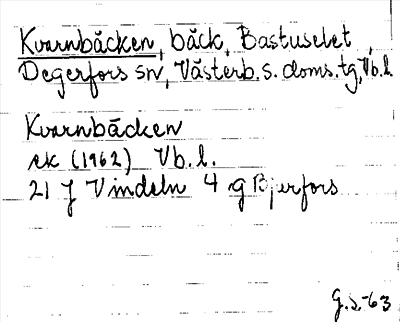 Kvarnbäcken, bäck, Bastuselet,
Degerfors sn, Västerb. s. doms. tg, Vb. l.
Kvarnbäcken
ek (1962) Vb. l.
21 J Vindeln 4 g Bjerfors
G.S. -63